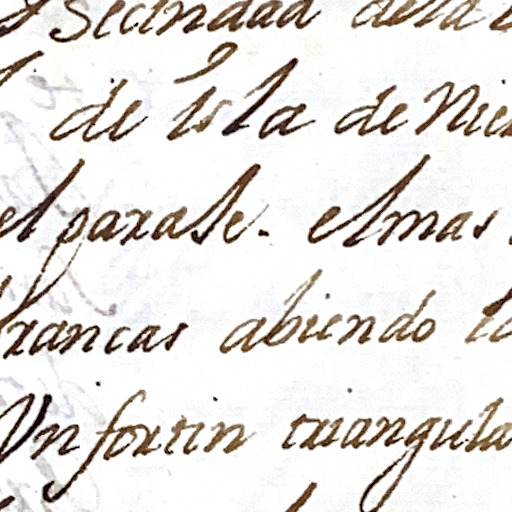 Secindad dela
de Isla de Nie
el paraje. el mas
francas abiendo
Un fortin triangula